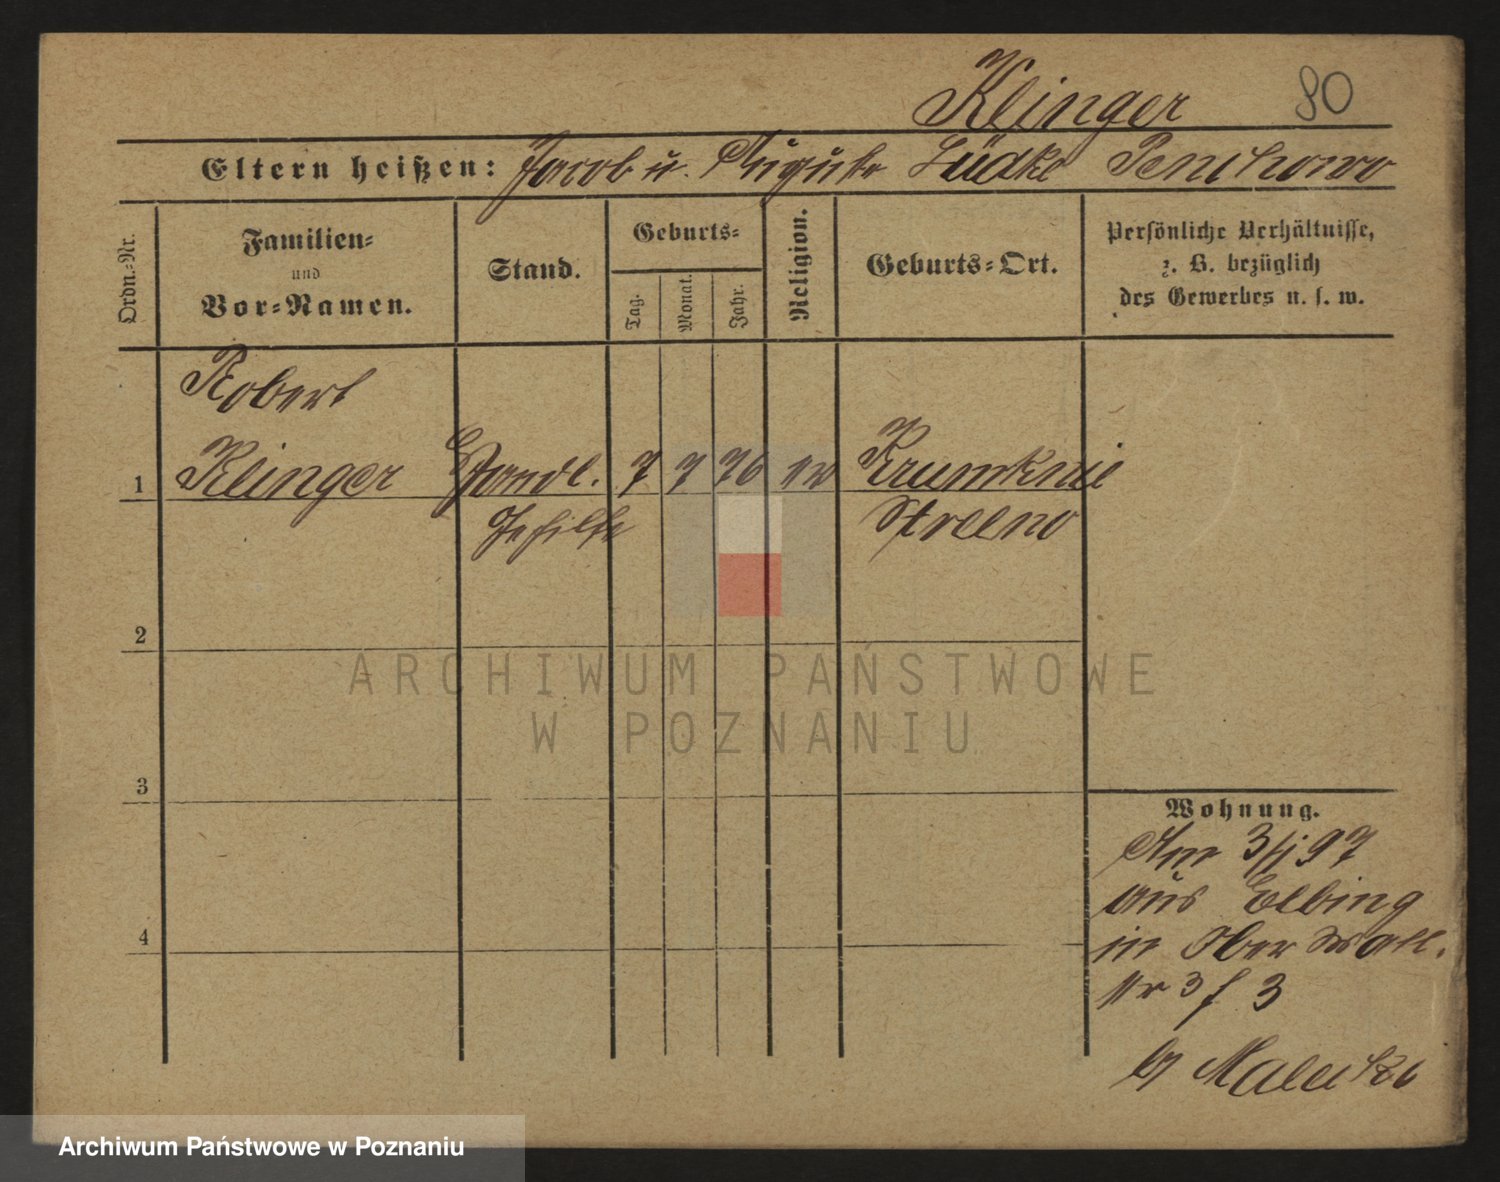 Klinger 80
Eltern heißen: Jacob u. Auguste Lüdke Penchowo
Ordn.-Nr.
Familien-
und
Vor-Namen.
Stand.
Geburts-
Tag.
Monat.
Jahr.
Religion.
Geburts-Ort.
Persönliche Verhältnisse,
z. B. bezüglich
des Gewerbes u. s. w.
Robert
1 Klinger Handl. 7 7 76 Krumknie
Gehilfe Strelno
2
3
4
Wohnung.
Am 3/1 97
aus Elbing
in Ober Wall.
3 3
ARCHIWUM PAŃSTWOWE
W POZNANIU
Archiwum Państwowe w Poznaniu